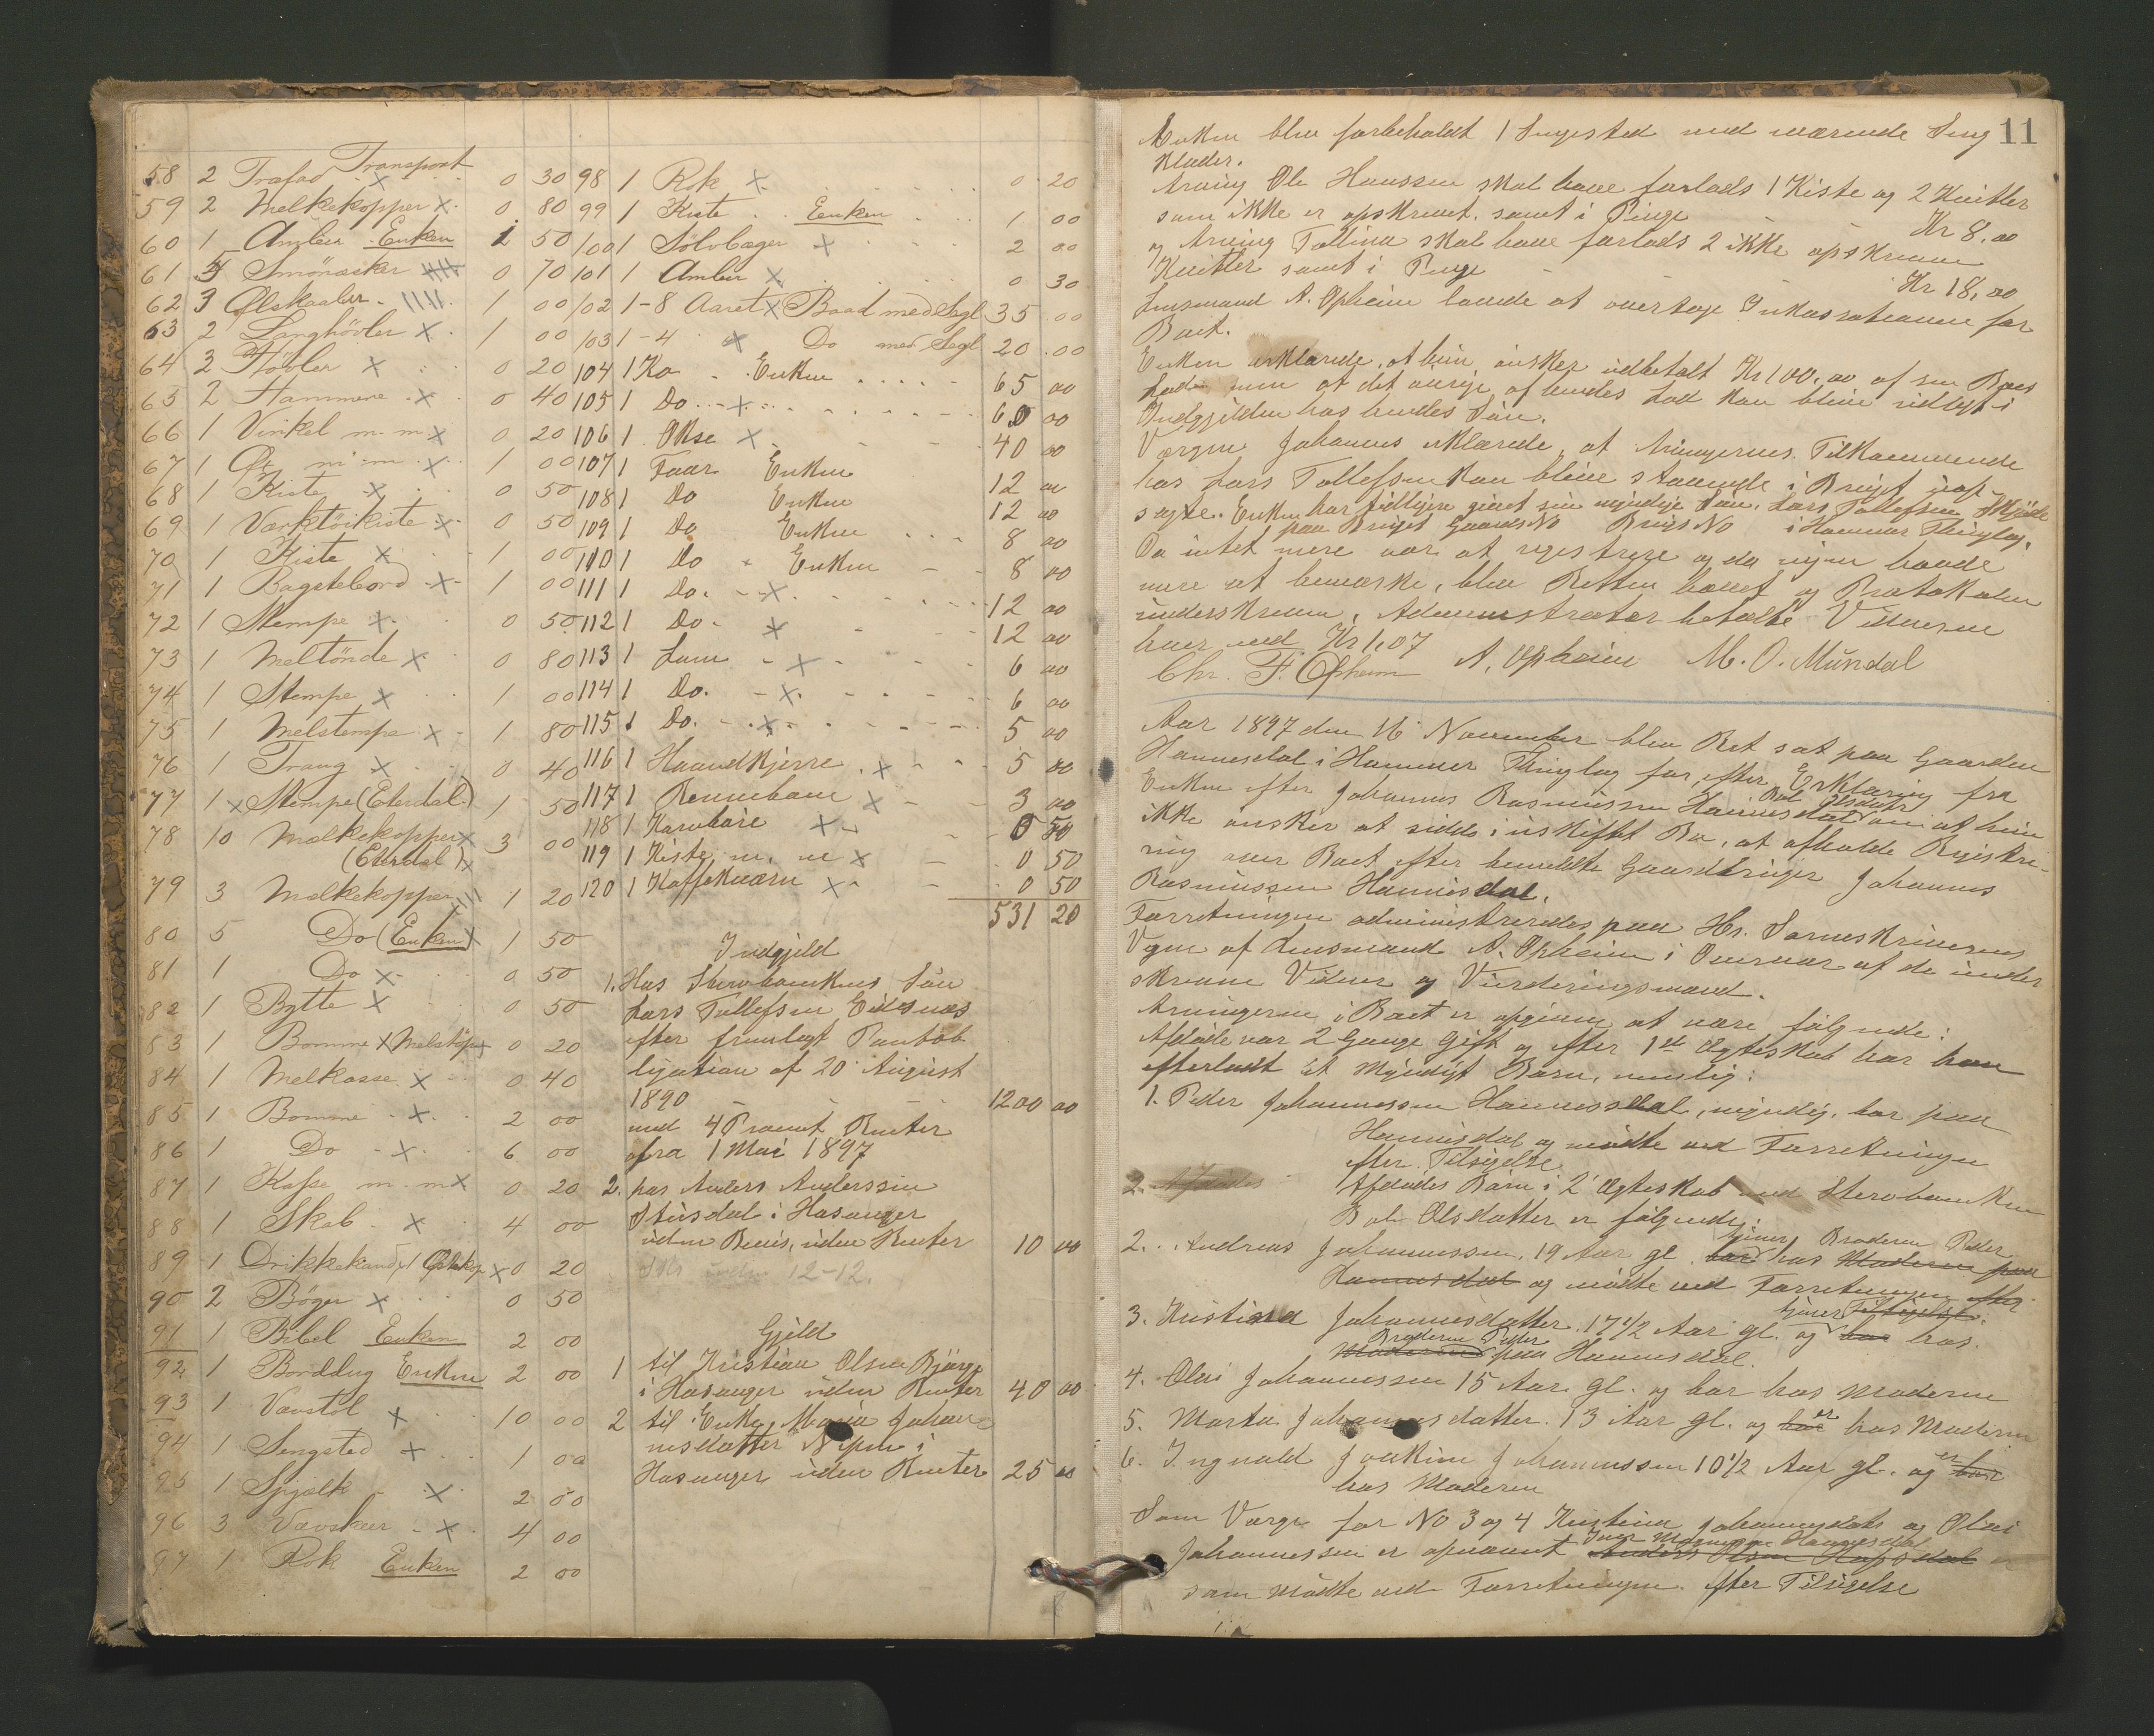 Transport
58 2 Træfad x 0 30
59 2 Melkekopper x 0 80
60 1 Amber Enken 1 50
61 5 Smöræsker 0 70
62 3 Ølskaaler 1 00
63 2 Langhövler x 1 00
64 3 Hövler x 0 20
65 2 Hammere x 0 40
66 1 Vinkel m. m x 0 20
67 1 Øx m m x 1 00
68 1 Kiste x 0 50
69 1 Værktöikiste x 0 50
70 1 Kiste x 1 00
71 1 Bagstebord x 1 00
72 1 Stempe x 0 50
73 1 Meltönde x 0 80
74 1 Stempe x 1 00
75 1 Melstempe x 1 80
76 1 Traug x 0 40
77 1 x Stempe (Eterdal) 1 50
78 10 Mælkekopper x 3 00
(Eterdal) x
79 3 Mælkekopper 1 20
80 5 Do (Enken) x 1 50
81 1 Do x 0 50
82 1 Bytte x 0 50
83 1 Bomme x 0 20
84 1 Melkasse x 0 40
85 1 Bomme x 2 00
86 1 Do x 6 00
87 1 Kasse m. m x 0 20
88 1 Skab x 4 00
89 1 Drikkekande x 0 20
90 2 Bøger x 0 50
91 1 Bibel Enken 2 00
92 1 Borddug Enken 2 00
93 1 Vævstol x 10 00
94 1 Sengsted x 1 00
95 1 Spjælk x 2 00
96 3 Vævskeer x 4 00
97 1 Rok Enken 2 00
98 1 Rok x 0 20
99 1 Kiste Eenken 1 00
100 1 Sölvbæger x 2 00
101 1 Amber x 0 30
102 1-8 Aaret x Baad med Segl 35 00
103 1-4 x Do med Segl 20 00
104 1 Ko Enken 65 00
105 1 Do x 60 00
106 1 Okse x 40 00
107 1 Faar Enken 12 00
108 1 Do Enken 12 00
109 1 Do Enken 8 00
110 1 Do Enken 8 00
111 1 Do. x 12 00
112 1 Do. x 12 00
113 1 Lam x 6 00
114 1 Do. x 6 00
115 1 Do. x 5 00
116 1 Haandkjerre x 5 00
117 1 Rennebom x 3 00
118 1 Karobáre x 0 50
119 1 Kiste m. m x 0 50
120 1 Kaffekværn x 0 50
531 20
Indgjeld
1. Hos Stervboenkens Sön
Lars Tollefsen Eidsnæs
efter fremlagt Pantob
ligation af 20 August
1890 1200 00
med 4 Procent Renter
fra 1 Mai 1897
2. hos Anders Anderssen
Stüsdal i Hosanger
uden Beviis, uden Renter 10 00
12-12.
Gjeld
1 til Kristian Olsen Bjørge
i Hosanger uden Renter 40 00
2 til Enke Maria Johan-
nesdatter Nipen i
Hosanger uden Renter 25 00
11
Enken blev forbeholdt 1 Sengested med værende Seng
klæder.
Arving Ole Hanssen skal have forlods 1 Kiste og 2 Kvitler
som ikke er opskrevet samt i Penge Kr 8,00
Arving Tollina skal have forlods 2 ikke opskrevne
Kvitler samt i Penge Kr 18,00
Lensmand A. Opheim lovede at overtage Inkassationen for
Boet.
Enken erklærede, at hun ønsker udbetalt Kr 100,00 af sin Boes
Lod men at det øvrige af hendes Lod kan blive udlagt i
Indgjelden hos hendes Sön.
Værgen Johannes erklærede, at Arvingernes Tilkommende
hos Lars Tollefsen kan blive staaende i Bruget uop-
sagte. Enken har tidligere givet sin myndige Sön Lars Tollefsen Skjöde
paa Bruget Gaards No Brugs No i Hammer Thinglag.
Da intet mere var at registrere og da ingen havde
mere at bemærke, blev Retten hævet og Protokolen
underskreven. Administrator betalte Vidnerne
hver med Kr 1,07
Chr. T. Opheim A. Opheim M. O. Mündal
Aar 1897 den 16 November blev Ret sat paa Gaarden
Hannesdal i Hammer Thinglag for, efter Erklæring fra
Enken efter Johannes Rasmussen Hannisdal Olsdatr om at hun
ikke ønsker at sidde i uskiftet Bo, at afholde Registre-
ring over Boet efter bemeldte Gaardbruger Johannes
Rasmussen Hannisdal.
Forretningen administreredes paa Hr. Sorenskriverens
Vegne af Lensmand A. Opheim i Overvær af de under
skrevne Vidner og Vurderingsmænd.
Arvingerne i Boet er opgivne at være fölgende:
Afdöde var 2 Gange gift og efter 1ste Ægteskab har han
efterladt et myndigt Barn, nemlig:
1. Peder Johannessen Hannesdal, myndig, bor paa
Hannisdal og mødte ved Forretningen
efter Tilsigelse
Afdödes Börn i 2 Ægteskab med Stervboenken
Olsdatter er fölgende:
2. Andreas Johannessen, 19 Aar gl. tjener bor hos Broderen Peder Moderen paa
Hannesdal og mødte ved Forretningen efter
Tilsigelse.
3. Kristina Johannesdatter 17 1/2 Aar gl. og tjener bor hos
Broderen Peder Moderen paa Hannesdal.
4. Olai Johannessen 15 Aar gl. og bor hos Moderen
5. Marta Johannesdatter 13 Aar gl. og er bor hos Moderen
6. Ingvald Joakim Johannessen 10 1/2 Aar gl. og er bor
hos Moderen
Som Værge for No 3 og 4 Kristina Johannesdatr og Olai
Johannessen er opnævnt Iver Mogensen Hannesdal Anders Olsen
som mødte ved Forretningen efter Tilsigelse